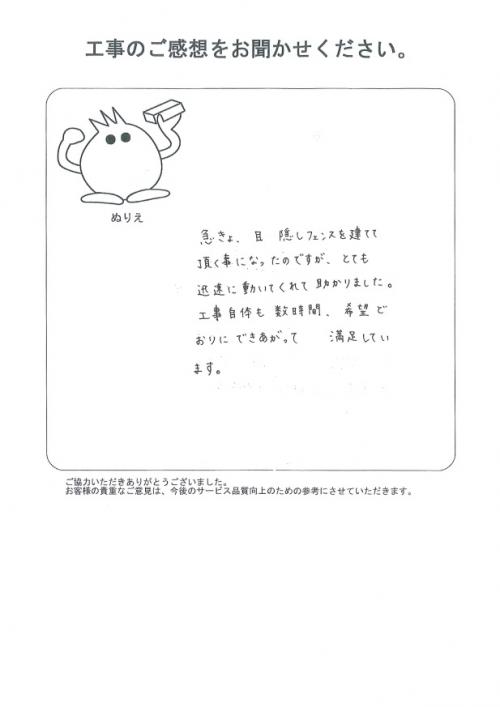 工事のご感想をお聞かせください。
ぬりえ
急きょ、目 隠しフェンスを建てて
頂く事になったのですが、とても
迅速に動いてくれて助かりました。
工事自体も数時間、希望ど
おりにできあがって 満足してい
ます。
ご協力いただきありがとうございました。
お客様の貴重なご意見は、今後のサービス品質向上のための参考にさせていただきます。